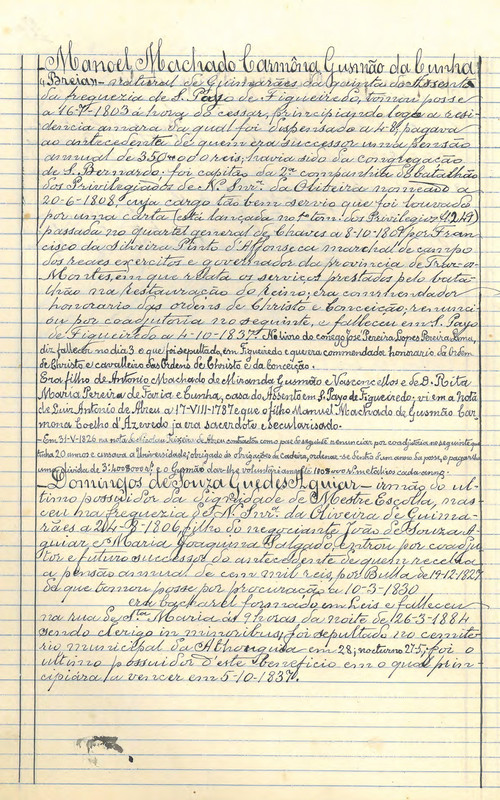 Manoel Machado Carmôna Gusmão da Cunha
Breias – natural de Guimarães da quinta do Assento
da freguezia de S. Payo de Figueiredo, tomou posse
a 1803 á hora do cessar, principiando logo a resi-
dencia amara da qual foi dispensado a pagava
ao antecedente de quem era successor uma pensão
annual de 350 reis; havia sido da congregação
de S. Bernardo: foi capitão da 2ª companhia do batalhão
dos Privilegiados de N. Snrª da Oliveira nomeado a
20-6-1808, cujo cargo tão bem servio que foi louvado
por uma carta (está lançada no tom. dos Privilegios
passada no quartel general de Chaves a 8-10-180 por Fran-
cisco da Silveira Pinto d'Affonseca marchal de campo
dos reaes exercitos e governador da provincia de Traz-os-
Montes, em que relata os serviços prestados pelo bata-
lhão na restauração do reino; era commendador
honorario das ordens de Christo e Conceição, renunci-
ou por coadjutoria no seguinte, e falleceu em S. Payo
de Figueiredo a 4-10-1837. No livro do conego José Pereira Lopes Pereira Lima,
diz fallecer no dia 3 e que foi sepultado em Figueiredo e que era commendador honorario da Ordem
de Christo e cavalleiro das Ordens de Christo e da Conceição.
Era filho de Antonio Machado de Miranda Gusmão e Vasconcellos e de D. Rita
Maria Pereira de Faria e Cunha, casa do Assento em S. Payo de Figueiredo; vi em a Nota
de Luiz Antonio de Abreu a 17-VIII-1787 e que o filho Manuel Machado de Gusmão Car-
mona Coelho d'Azevedo ja era sacerdote e secularisado.
– Em 31-V-1826 na nota de Nicolau Teixeira de Abreu contractou com pae do seguinte renunciar por coadjutoria no seguinte que
tinha 20 annos e cursava a Universidade; obrigado ás obrigações da cadeira, ordenar-se dentro d'um anno da posse, e pagar-lhe
uma divida de e o Gusmão dar-lhe voluntariamente em metal cada anno.
Domingos de Souza Guedes Aguiar – irmão do ul-
timo possuidor da Dignidade de Mestre Escolla, nas-
ceu na freguezia de N. Snrª. da Oliveira de Guima
rães a 24-8-1806, filho do negociante João de Souza A-
guiar e Maria Joaquina Salgado, entrou por coadju-
tor e futuro successor do antecedente de quem recebia
a pensão annual de cem mil reis, por Bulla de 19-12-1829
da que tomou posse por procuração a 10-3-1830
era bacharel formado em Leis e falleceu
na rua de Sta Maria ás 9 horas da noite de 26-3-1884
sendo clerigo in minoribus; foi sepultado no cemite-
rio municipal da Athouguia em 28; nocturno 275; foi o
ultimo possuidor d'este beneficio em o qual prin-
cipiára a vencer em 5-10-1837.